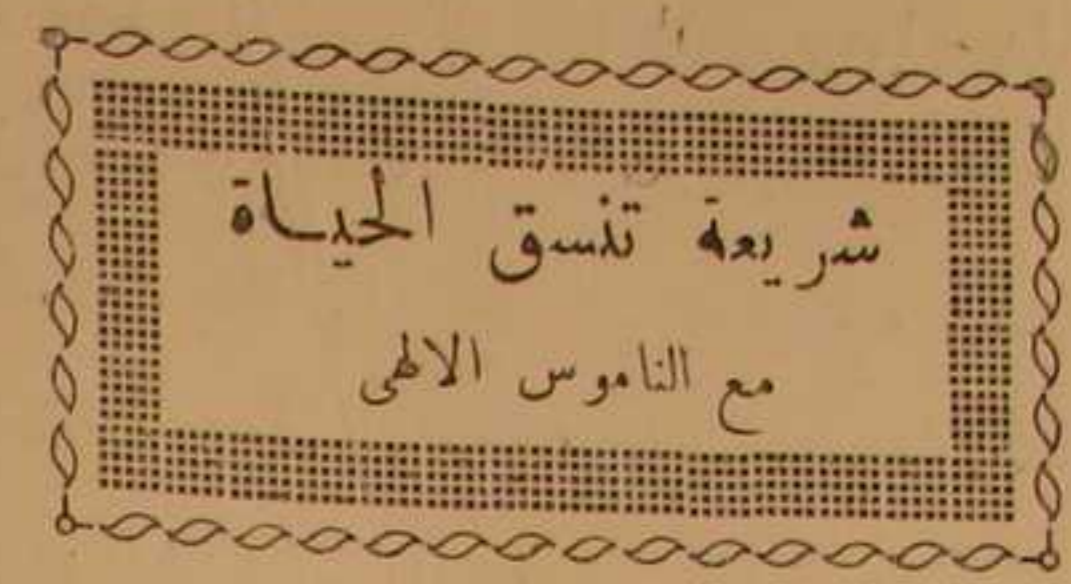 شريعة تنسق الحياة
مع الناموس الالهى